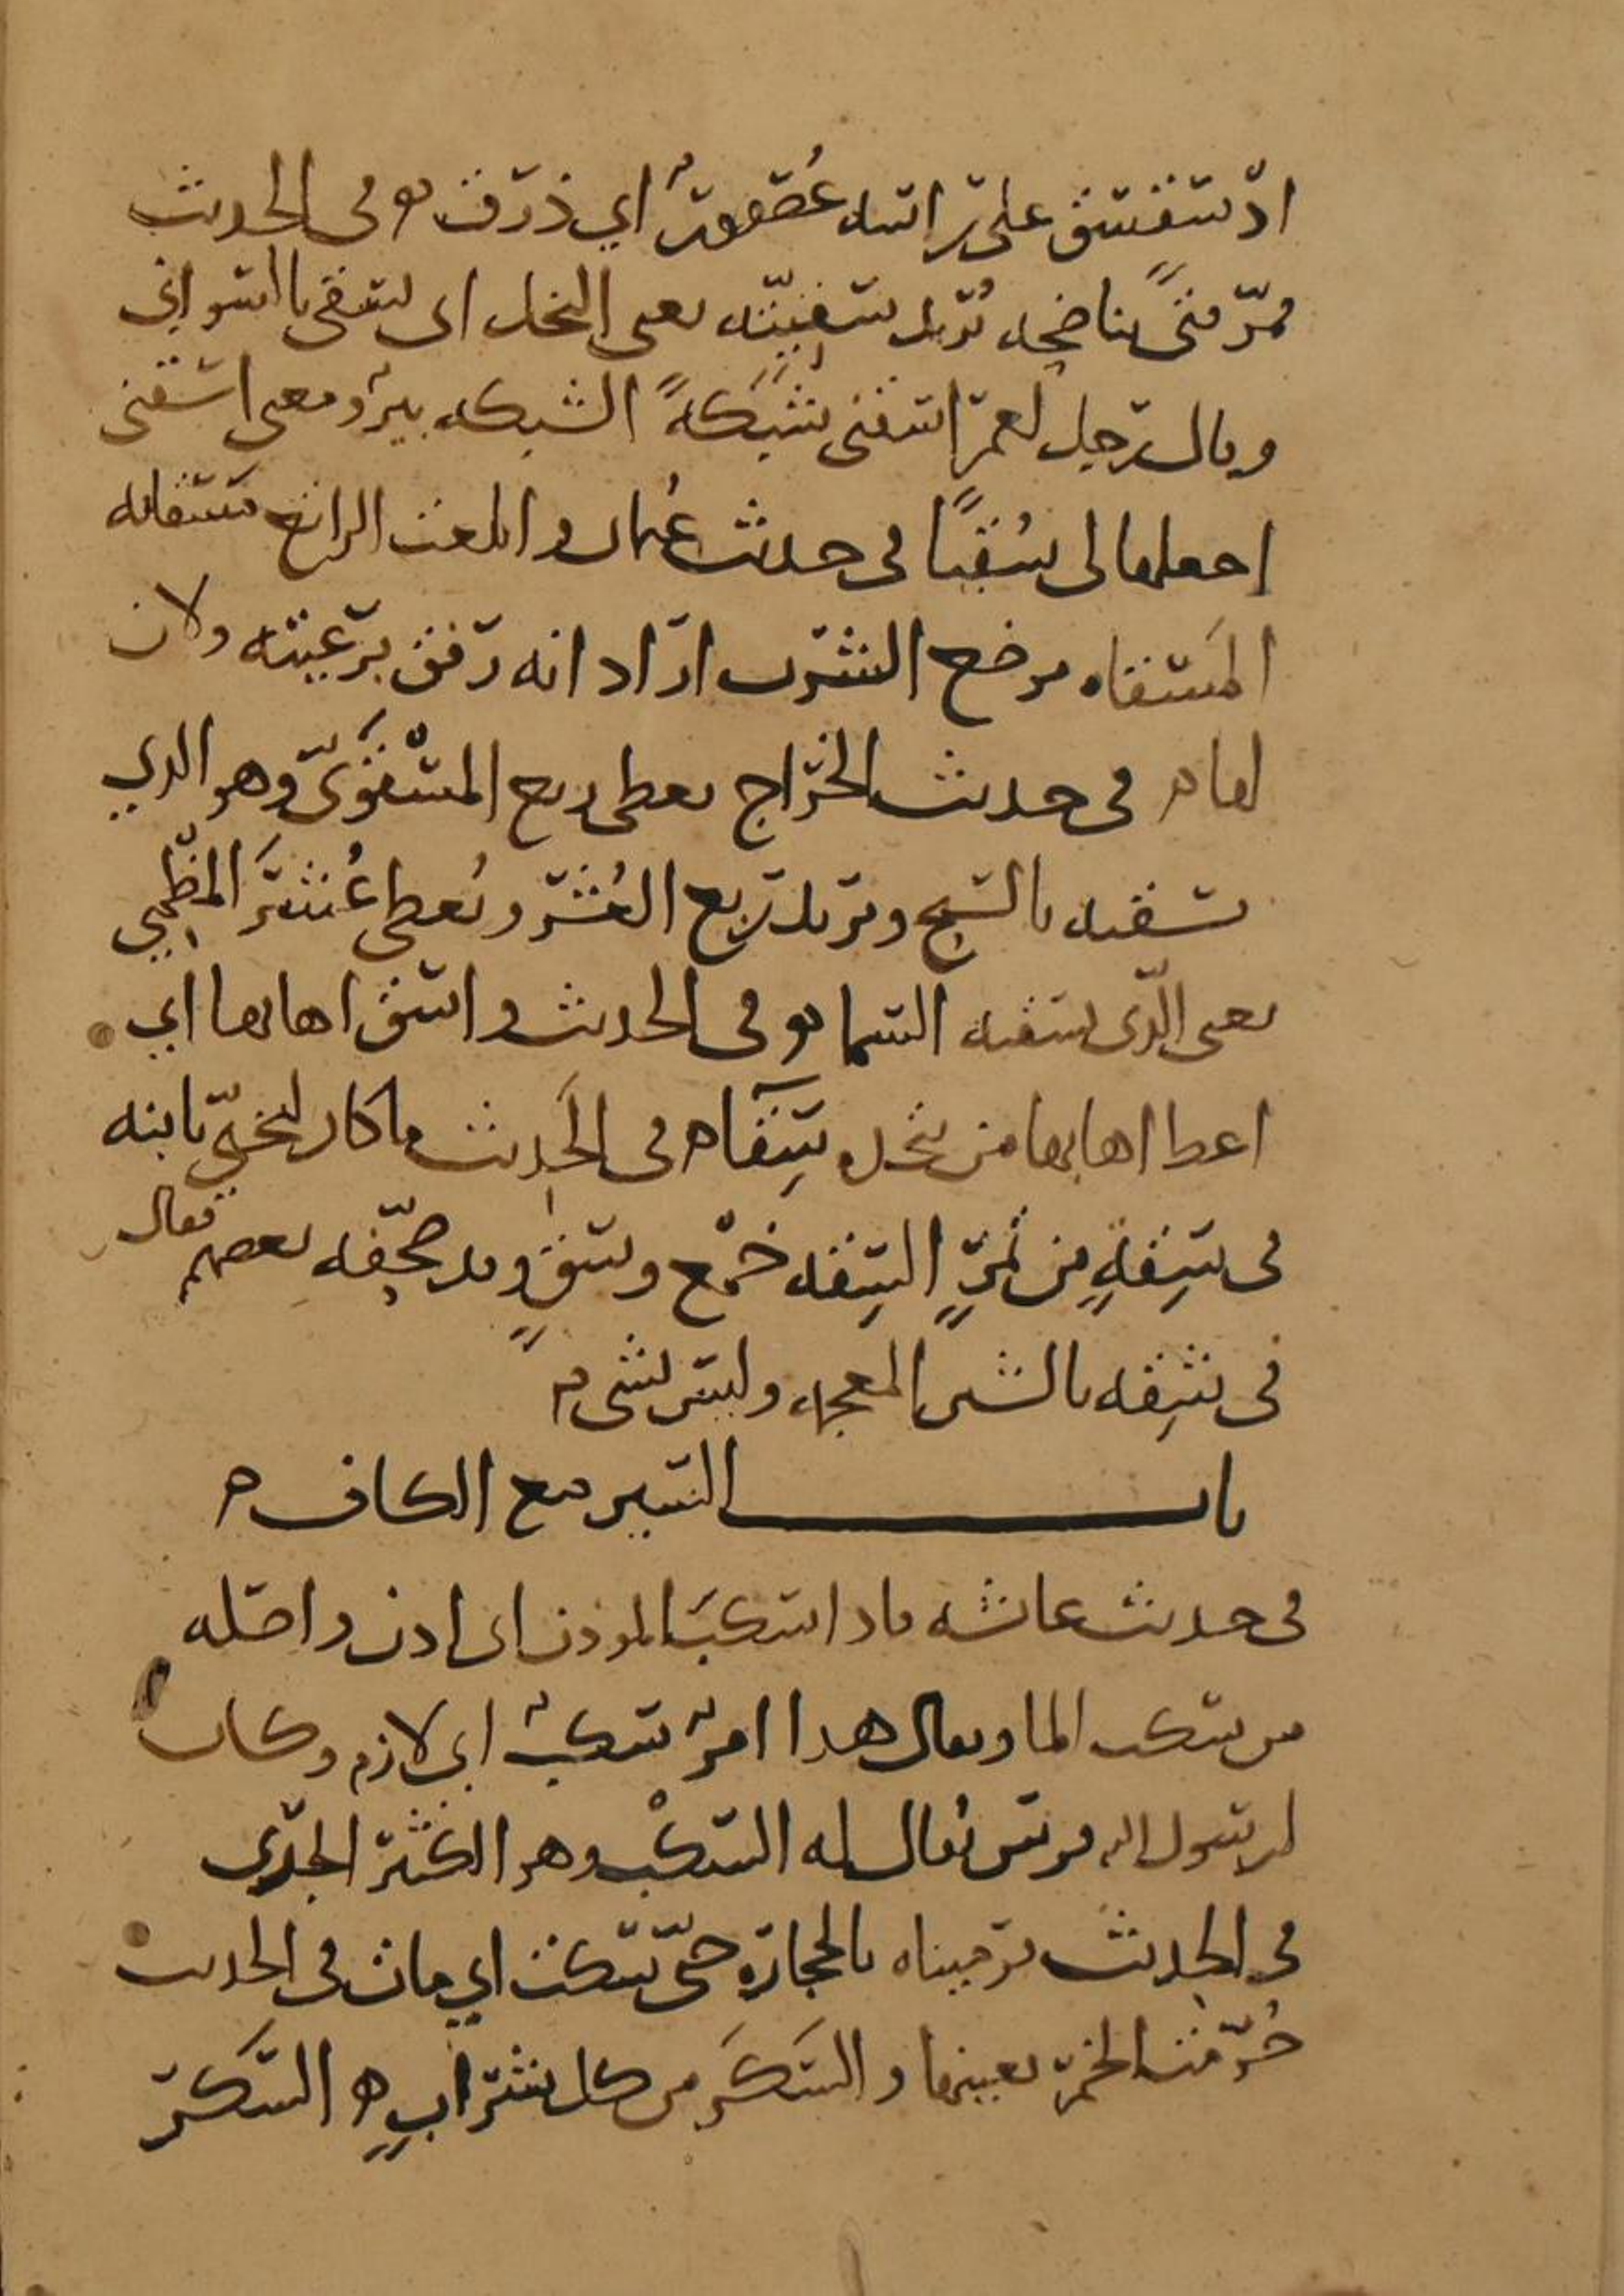 اذ سقسق على راسه عُصفورٌ اي ذرق ه وفي الحديث
فمرّ فتىً بناضحه تُريد سَقِيّته يعني النخل اي تسقى بالسواني
وقال رجل لعمر اسقني شَبَكةً الشبكه بيرٌ ومعنى اسقني
اجعلها لي سُقيًا في حديث عُثمان وابلغت الراتع مسقاته
المَسقاه موضع الشرب اراد انه رفق برعيته ولان
لها ه في حديث الخراج يعطى ربع المسْقَوِيّ وهو الذي
يسقيه بالسيح وتريد ربع العُشر ويُعطى عُشرَ المظمي
يعني الذي يسقيه السما ه وفي الحديث واسق اهابها اي
اعط اهابها من يتخذه سِقآ ه في الحديث ما كان ليخني بابنه
في سِقةٍ من تمرٍ السِقه جمع وسقٍ وقد صحّفه بعضهم فقال
في شِقه بالشين المعجمه وليس بشي ه
باب السين مع الكاف ه
في حديث عائشه فاذا سكب الموذن اي اذن واصله
من سكب الما ويقال هذا امرٌ سكبٌ اي لازم وكان
لرسول الله فرس يُقال له السكْب وهو الكثير الجري
في الحديث فرميناه بالحجاره حتّى سكت اي مات في الحديث
حُرّمت الخمر بعينها والسَكَر من كل شرابٍ ه السكر